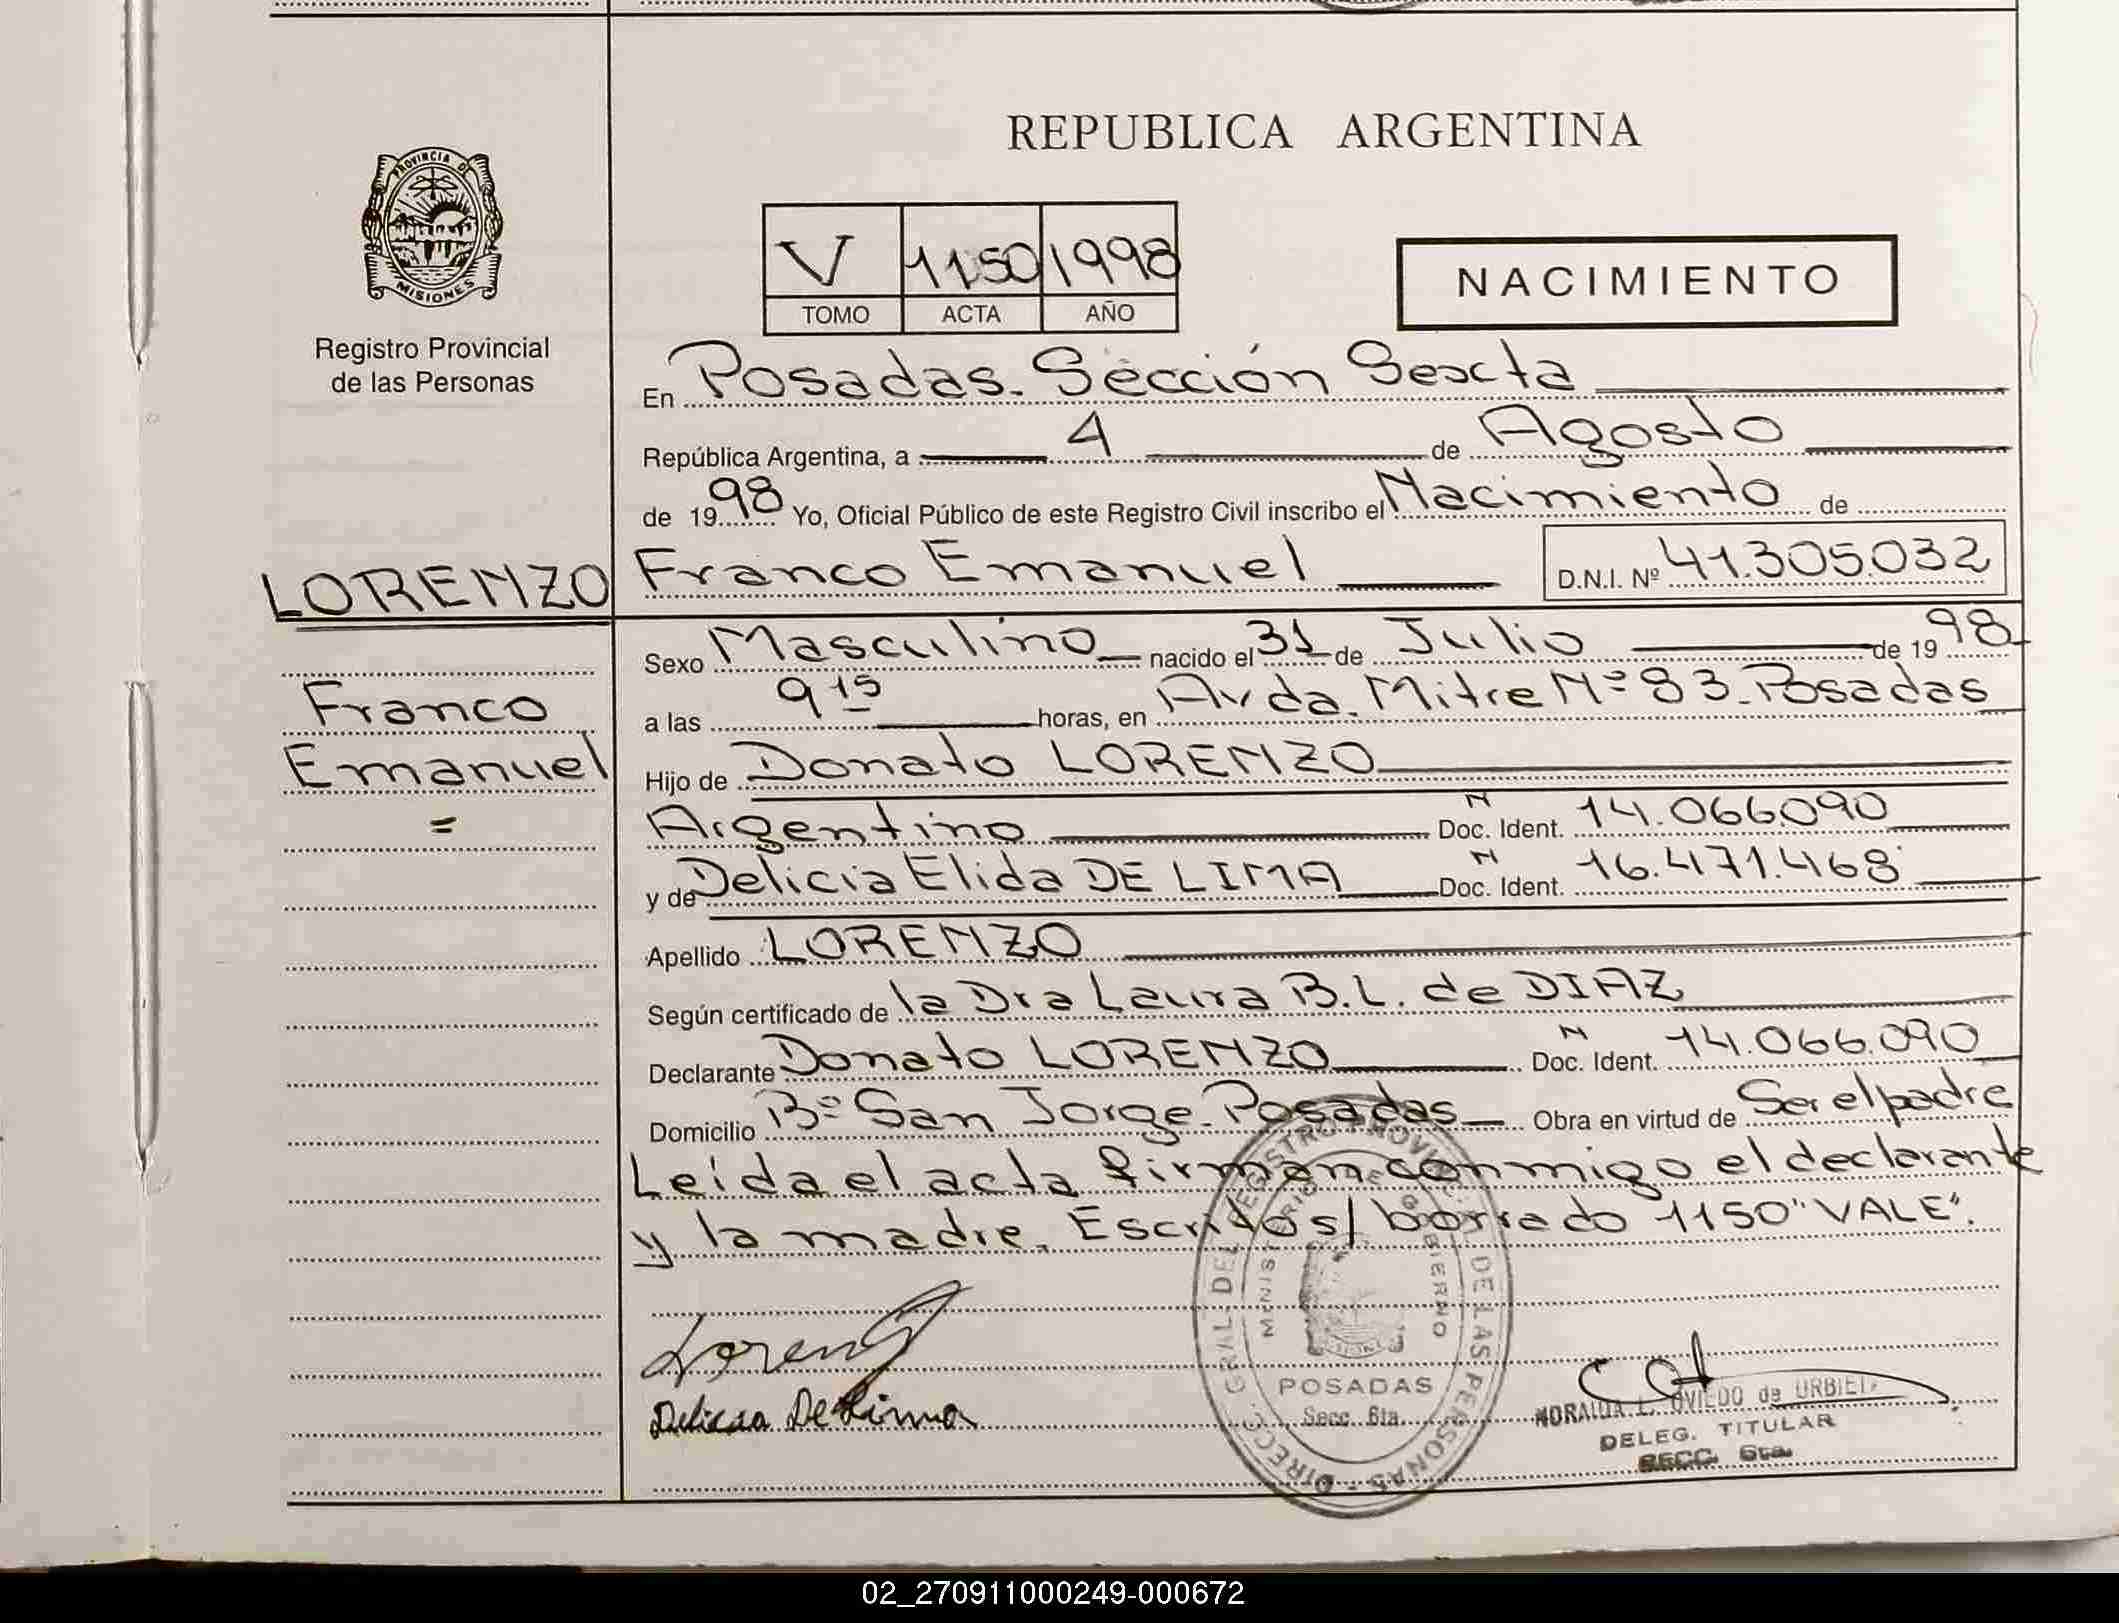 REPUBLICA ARGENTINA
PROVINCIA DE
MISIONES
Registro Provincial
de las Personas
V 1150 1998
TOMO ACTA AÑO
NACIMIENTO
En Posadas. Sección Sexta
República Argentina, a 4 de Agosto
de 1998 Yo, Oficial Público de este Registro Civil inscribo el Nacimiento de
LORENZO
Franco Emanuel D.N.I. Nº 41.305.032
Sexo Masculino nacido el 31 de Julio de 1998
Franco
Emanuel
=
a las 9 15 horas, en Avda. Mitre Nº 83. Posadas
Hijo de Donato LORENZO
Argentino Doc. Ident. N 14.066.090
y de Delicia Elida DE LIMA Doc. Ident. N 16.471.468
Apellido LORENZO
Según certificado de la Dra Laura B.L. de DIAZ
Declarante Donato LORENZO Doc. Ident. N 14.066.090
Domicilio Bº San Jorge. Posadas Obra en virtud de Ser el padre
Leída el acta firman conmigo el declarante
y la madre. Escritos/ borrado 1150 "VALE".
Lorenz
Delicia De Lima
DIRECC. GRAL. DEL REGISTRO PROVINCIAL DE LAS PERSONAS
MINISTERIO DE GOBIERNO
POSADAS
Secc. 6ta.
NORAIDA L. OVIEDO de URBIETA
DELEG. TITULAR
SECC. 6ta.
02_270911000249-000672